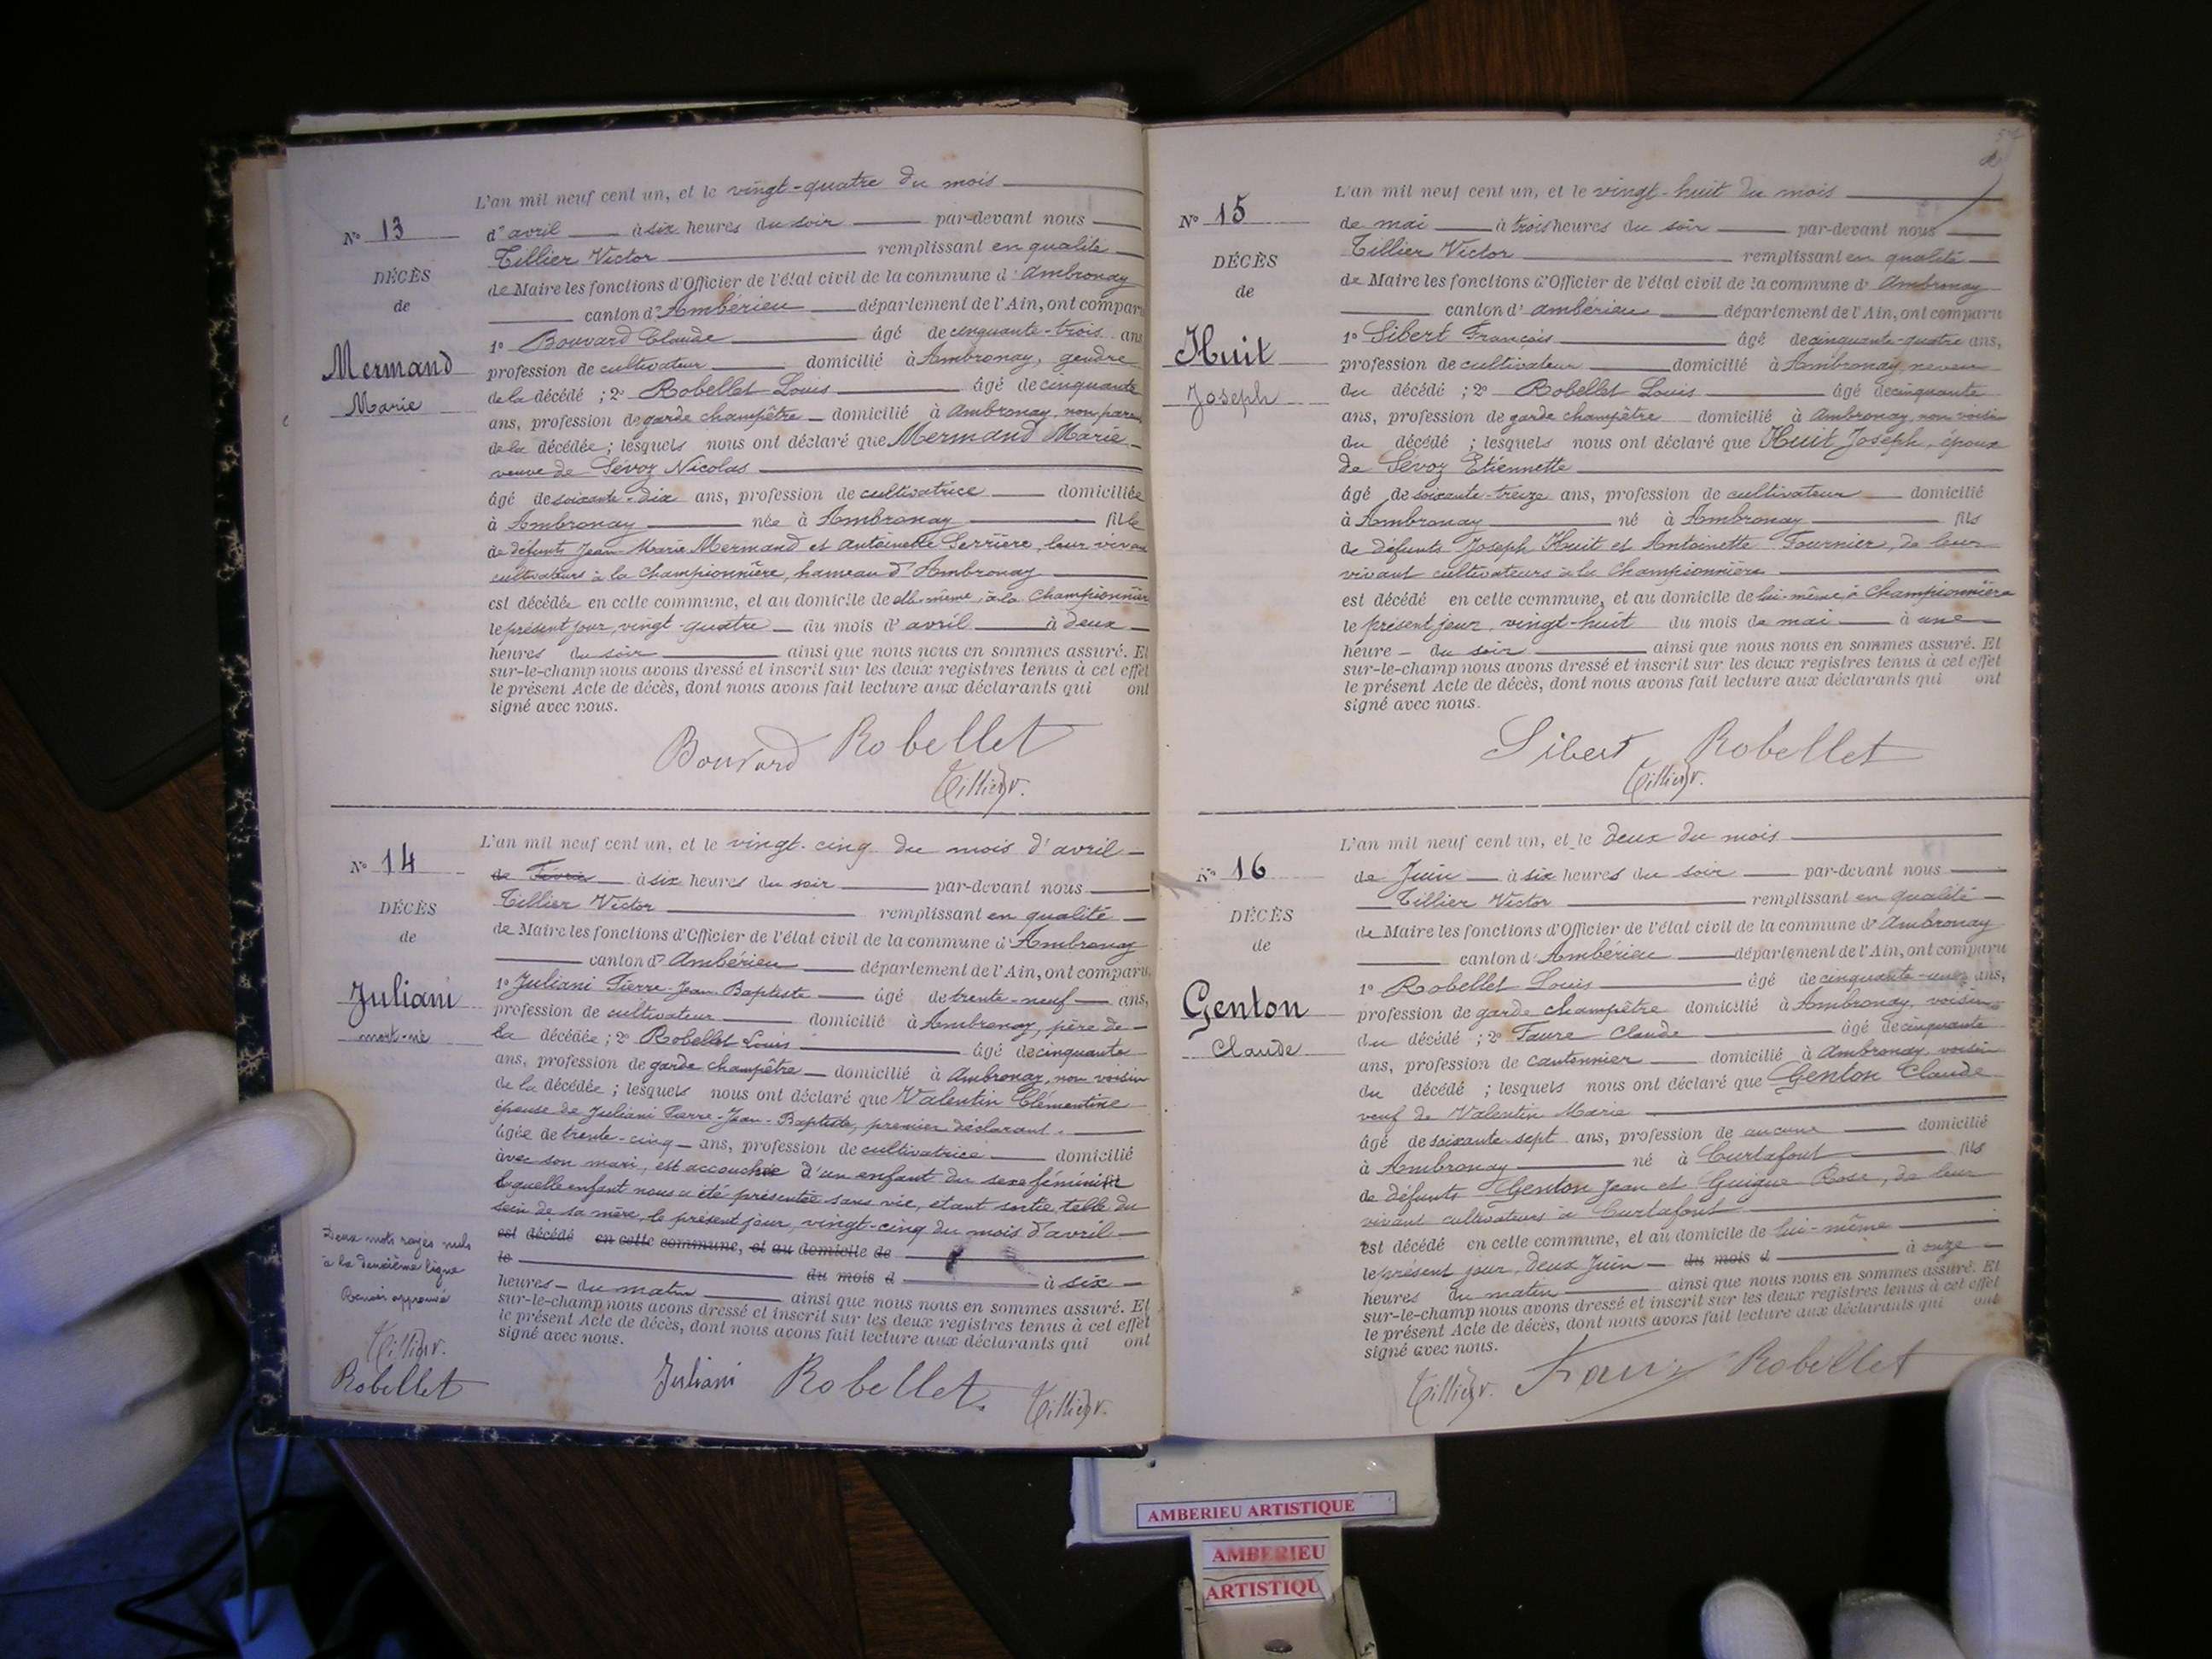 L'an mil neuf cent un, et le vingt-quatre du mois
N° 13
d'avril à six heures du soir par-devant nous
Tillier Victor remplissant en qualité
DÉCÈS
de Maire les fonctions d'Officier de l'état civil de la commune d'Ambronay
de
canton d'Ambérieu département de l'Ain, ont comparu
1° Bouvard Claude âgé de cinquante-trois ans
Mermand
profession de cultivateur domicilié à Ambronay, gendre
Marie
de la décédé ; 2° Robellet Louis âgé de cinquante
ans, profession de garde champêtre domicilié à Ambronay, non paren
de la décédée ; lesquels nous ont déclaré que Mermand Marie
veuve de Sévoz Nicolas
âgé de soixante-dix ans, profession de cultivatrice domiciliée
à Ambronay née à Ambronay fille
de défunts Jean-Marie Mermand et Antoinette Serrière, leur vivant
cultivateurs à la Championnière, hameau d'Ambronay
est décédée en cette commune, et au domicile de elle-même, à la Championnièr
le présent jour, vingt-quatre du mois d'avril à deux
heures du soir ainsi que nous nous en sommes assuré. Et
sur-le-champ nous avons dressé et inscrit sur les deux registres tenus à cet effet
le présent Acte de décès, dont nous avons fait lecture aux déclarants qui ont
signé avec nous.
Bouvard Robellet
Tillier V.
L'an mil neuf cent un, et le vingt-cinq du mois d'avril
N° 14
de Février à six heures du soir par-devant nous
Tillier Victor remplissant en qualité
DÉCÈS
de Maire les fonctions d'Officier de l'état civil de la commune d'Ambronay
de
canton d'Ambérieu département de l'Ain, ont comparu
1° Juliani Pierre-Jean-Baptiste âgé de trente-neuf ans,
Juliani
profession de cultivateur domicilié à Ambronay, père de
mort-né
la décédée ; 2° Robellet Louis âgé de cinquante
ans, profession de garde champêtre domicilié à Ambronay, non voisin
de la décédée ; lesquels nous ont déclaré que Valentin Clémentine
épouse de Juliani Pierre-Jean-Baptiste, premier déclarant.
âgée de trente-cinq ans, profession de cultivatrice domicilié
avec son mari, est accouchée d'un enfant du sexe féminin
laquelle enfant nous a été présentée sans vie, étant sortie telle du
sein de sa mère, le présent jour, vingt-cinq du mois d'avril
est décédé en cette commune, et au domicile de
le du mois d à six
heures du matin ainsi que nous nous en sommes assuré. Et
sur-le-champ nous avons dressé et inscrit sur les deux registres tenus à cet effet
le présent Acte de décès, dont nous avons fait lecture aux déclarants qui ont
signé avec nous.
Deux mots rayés nuls
à la deuxième ligne
Renvoi approuvé
Tillier V.
Robellet
Juliani Robellet Tillier V.
L'an mil neuf cent un, et le vingt-huit du mois
N° 15
de mai à trois heures du soir par-devant nous
Tillier Victor remplissant en qualité
DÉCÈS
de Maire les fonctions d'Officier de l'état civil de la commune d'Ambronay
de
canton d'ambérieu département de l'Ain, ont comparu
1° Sibert François âgé de cinquante-quatre ans,
Huit
profession de cultivateur domicilié à Ambronay, neveu
Joseph
du décédé ; 2° Robellet Louis âgé de cinquante
ans, profession de garde champêtre domicilié à Ambronay, non voisin
du décédé ; lesquels nous ont déclaré que Huit Joseph, époux
de Sévoz Etiennette
âgé de soixante-treize ans, profession de cultivateur domicilié
à Ambronay né à Ambronay fils
de défunts Joseph Huit et Antoinette Fournier, de leur
vivant cultivateurs à la Championnière
est décédé en cette commune, et au domicile de lui-même, à Championnière
le présent jour, vingt-huit du mois de mai à une
heure du soir ainsi que nous nous en sommes assuré. Et
sur-le-champ nous avons dressé et inscrit sur les deux registres tenus à cet effet
le présent Acte de décès, dont nous avons fait lecture aux déclarants qui ont
signé avec nous.
Sibert Robellet
Tillier V.
L'an mil neuf cent un, et le deux du mois
N° 16
de Juin à six heures du soir par-devant nous
Tillier Victor remplissant en qualité
DÉCÈS
de Maire les fonctions d'Officier de l'état civil de la commune d'Ambronay
de
canton d'Ambérieu département de l'Ain, ont comparu
1° Robellet Louis âgé de cinquante-une ans,
Genton
profession de garde champêtre domicilié à Ambronay, voisin
Claude
du décédé ; 2° Faure Claude âgé de cinquante
ans, profession de cantonnier domicilié à Ambronay, voisin
du décédé ; lesquels nous ont déclaré que Genton Claude
veuf de Valentin Marie
âgé de soixante-sept ans, profession de aucune domicilié
à Ambronay né à Curtafont fils
de défunts Genton Jean et Guigue Rose, de leur
vivant cultivateurs à Curtafont
est décédé en cette commune, et au domicile de lui-même
le présent jour, deux Juin du mois d à onze
heures du matin ainsi que nous nous en sommes assuré. Et
sur-le-champ nous avons dressé et inscrit sur les deux registres tenus à cet effet
le présent Acte de décès, dont nous avons fait lecture aux déclarants qui ont
signé avec nous.
Tillier V. Faure Robellet
AMBERIEU ARTISTIQUE
AMBERIEU
ARTISTIQU